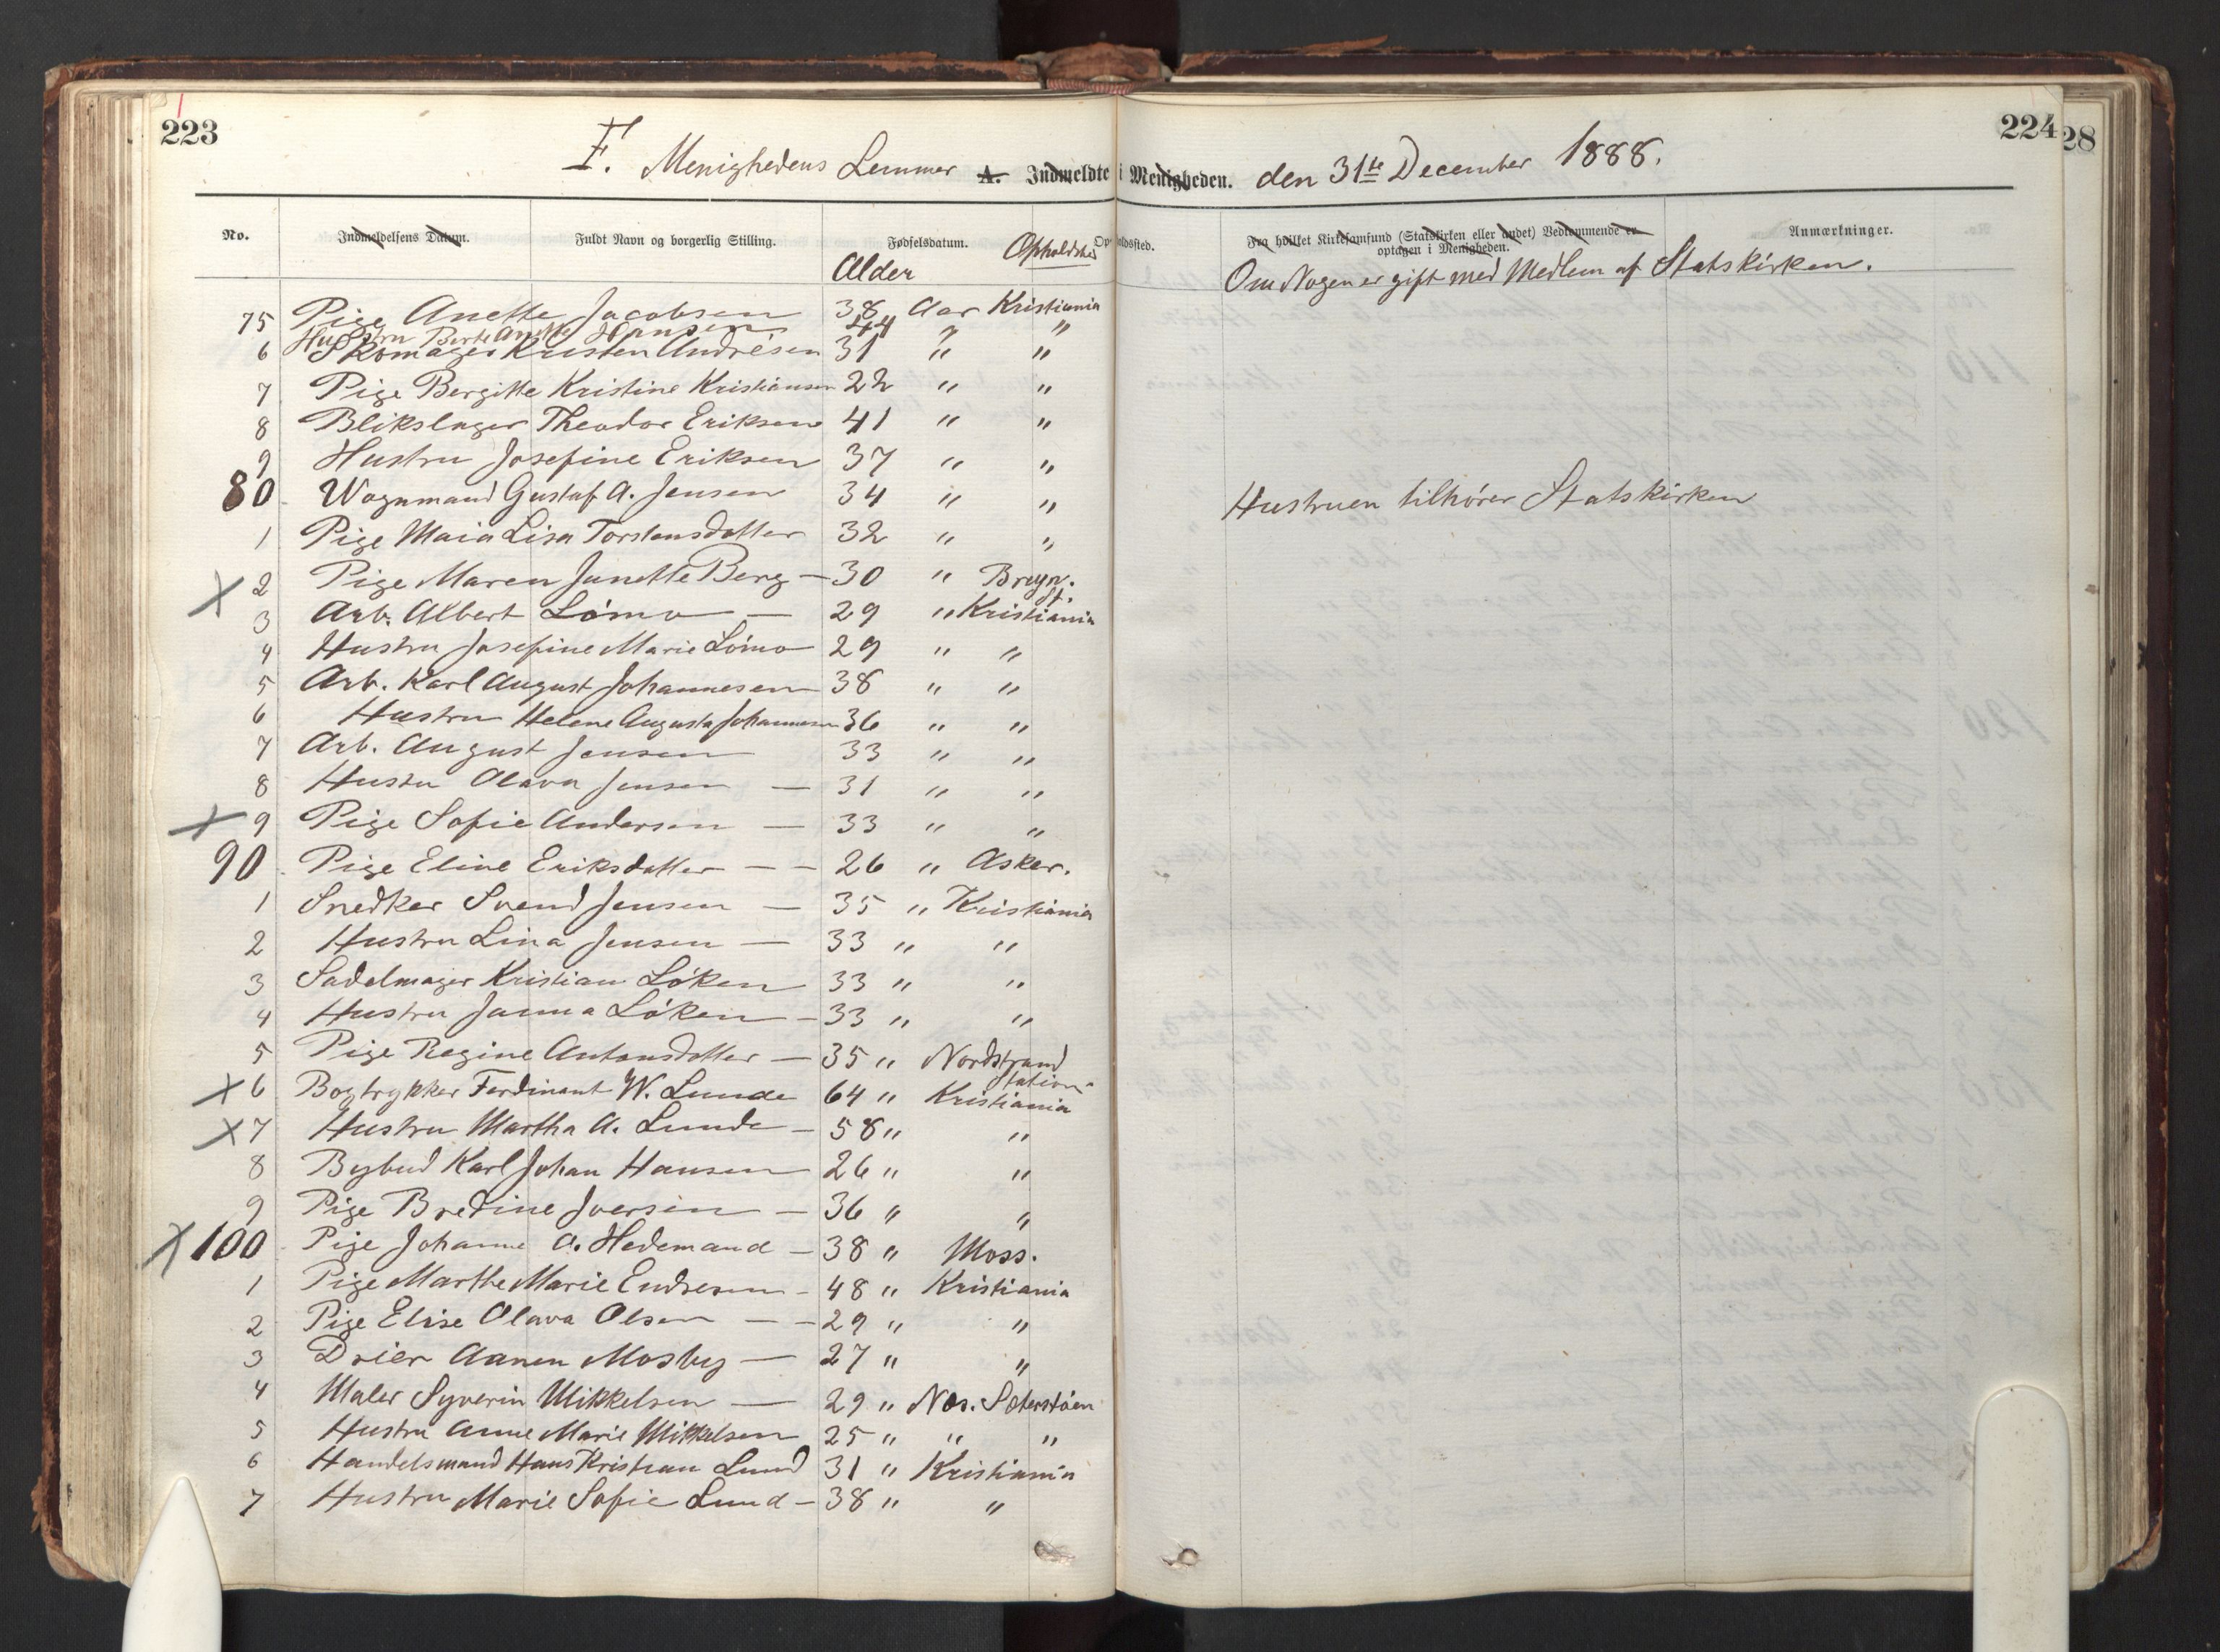 223
224
28
F. Menighedens Lemmer A. Indmeldte i Menigheden. den 31te December 1888.
No. Indmeldelsens Datum. Fuldt Navn og borgerlig Stilling. Fødselsdatum. Opholdssted. Fra hvilket Kirkesamfund (Statskirken eller andet) Vedkommende er Anmærkninger.
optagen i Menigheden.
Alder Opholdsted Om Nogen er gift med Medlem af Statskirken.
75 Pige Anette Jacobsen 38 Aar Kristiania
Hustru Berte Anette Hansen 44 " "
6 Skomager Kristen Andrésen 31 " "
7 Pige Bergitte Kristine Kristiansen 22 " "
8 Blikslager Theodor Eriksen 41 " "
9 Hustru Josefine Eriksen 37 " "
80 Wognmand Gustaf A. Jensen 34 " " Hustruen tilhører Statskirken
1 Pige Maia Lisa Torstensdatter 32 " "
X 2 Pige Maren Janette Berg — 30 " Bryn. St.
3 Arb. Albert Lömo — 29 " Kristiania
4 Hustru Josefine Marie Lömo 29 " "
5 Arb. Karl August Johannesen 38 " "
6 Hustru Helene Augusta Johannesen 36 " "
7 Arb. August Jensen 33 " "
8 Hustru Olava Jensen — 31 " "
X 9 Pige Sofie Andersen — 33 " "
90 Pige Eline Eriksdatter — — 26 " Asker.
1 Snedker Svend Jensen — 35 " Kristiania
2 Hustru Lina Jensen — 33 " "
3 Sadelmager Kristian Löken 33 " "
4 Hustru Janna Löken — 33 " "
5 Pige Regine Antonsdatter — 35 " Nordstrand Station
X 6 Bogtrykker Ferdinant W. Lunde 64 " Kristiania
X 7 Hustru Martha A. Lunde — 58 " "
8 Bybud Karl Johan Hansen 26 " "
9 Pige Bredine Iversen — 36 " "
X 100 Pige Johanne A. Hedemand — 38 " Moss.
1 Pige Marthe Marie Endresen — 48 " Kristiania
2 Pige Elise Olava Olsen — — 29 " "
3 Drier Aanen Mosby — 27 " "
4 Maler Syverin Mikkelsen — 29 " Nes. Sæterstöen
5 Hustru Anne Marie Mikkelsen 25 " " "
6 Handelsmand Hans Kristian Lund 31 " Kristiania
7 Hustru Marie Sofie Lund — 38 " "